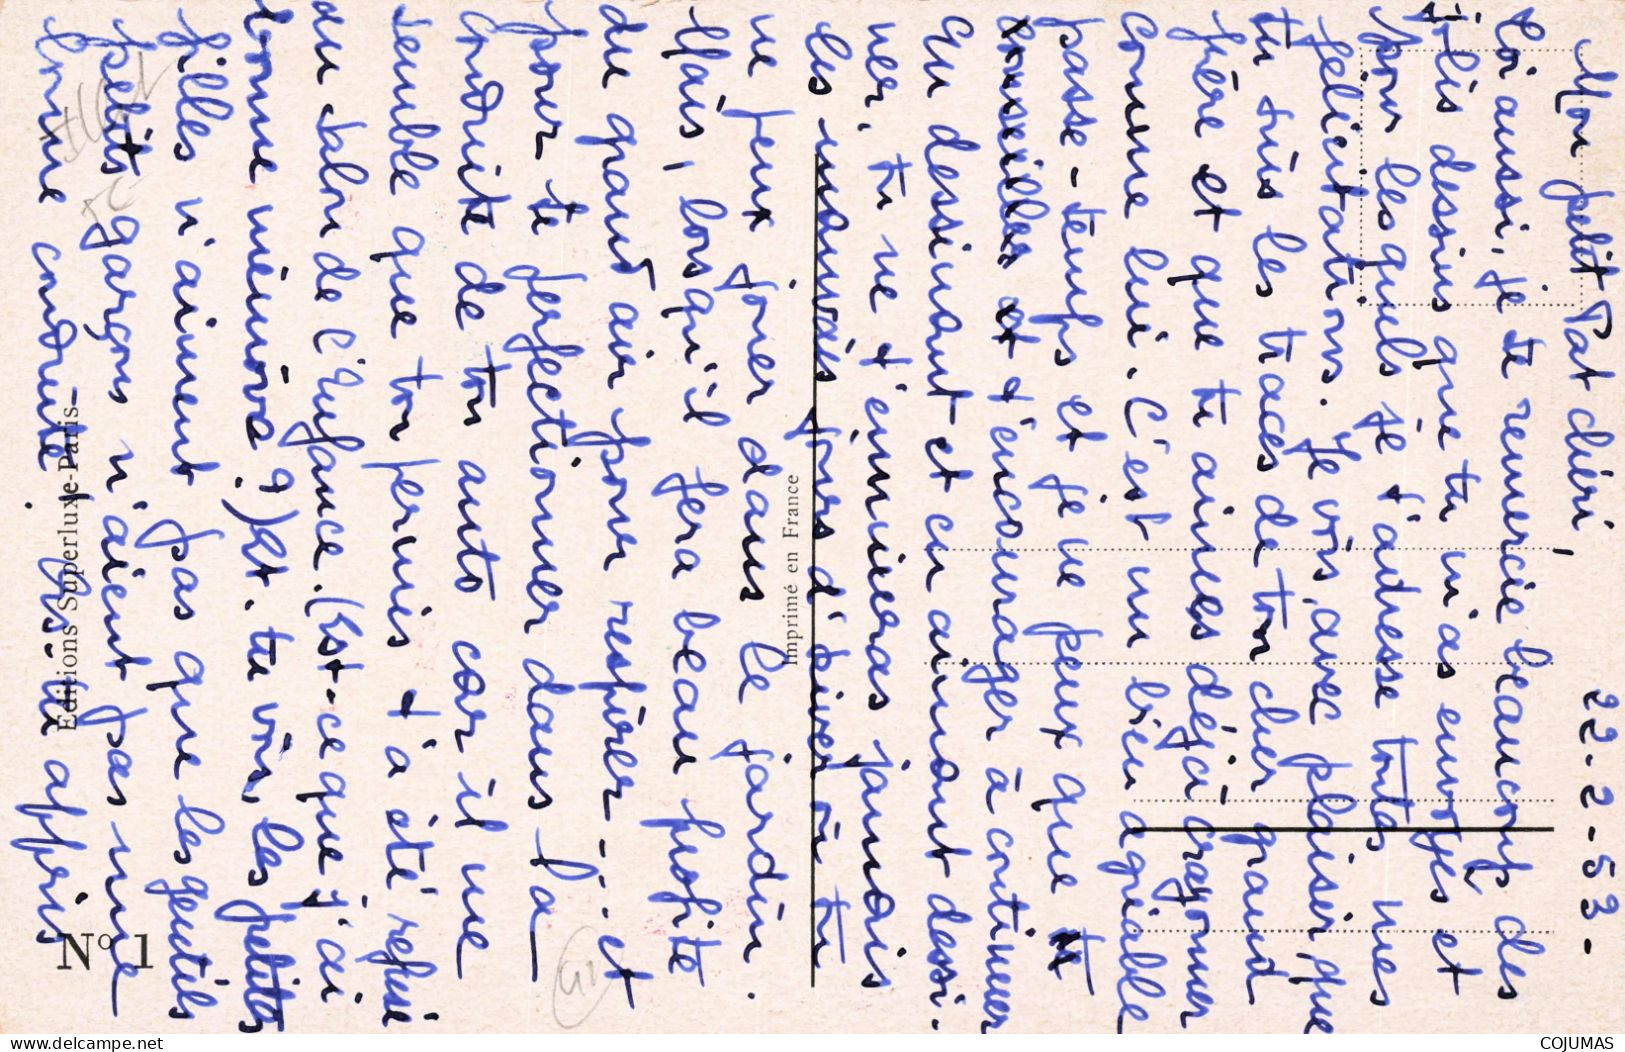 22.2-53-
Mon petit Pat chéri,
Toi aussi, je te remercie beaucoup des
jolis dessins que tu m'as envoyés et
pour lesquels je t'adresse toutes mes
félicitations. Je vois, avec plaisir, que
tu suis les traces de ton cher grand
père et que tu aimes déjà crayonner
comme lui. C'est un bien agréable
passe-temps et je ne peux que te
conseiller et t'encourager à continuer
En dessinant et en aimant dessi-
ner, tu ne t'ennuieras jamais
les mauvais jours d'hiver où tu
ne peux jouer dans le jardin.
Mais, lorsqu'il fera beau profite
du grand air pour respirer... et
pour te perfectionner dans la
conduite de ton auto car il me
semble que ton permis t'a été refusé
au salon de l'Enfance. (Est-ce que j'ai
bonne mémoire?) Et. tu vois, les petites
filles n'aiment pas que les gentils
petits garçons n'aient pas une
bonne conduite. As-tu appris
Editions Superluxe-Paris
N° 1
Imprimé en France
delcampe.net
COJUMAS